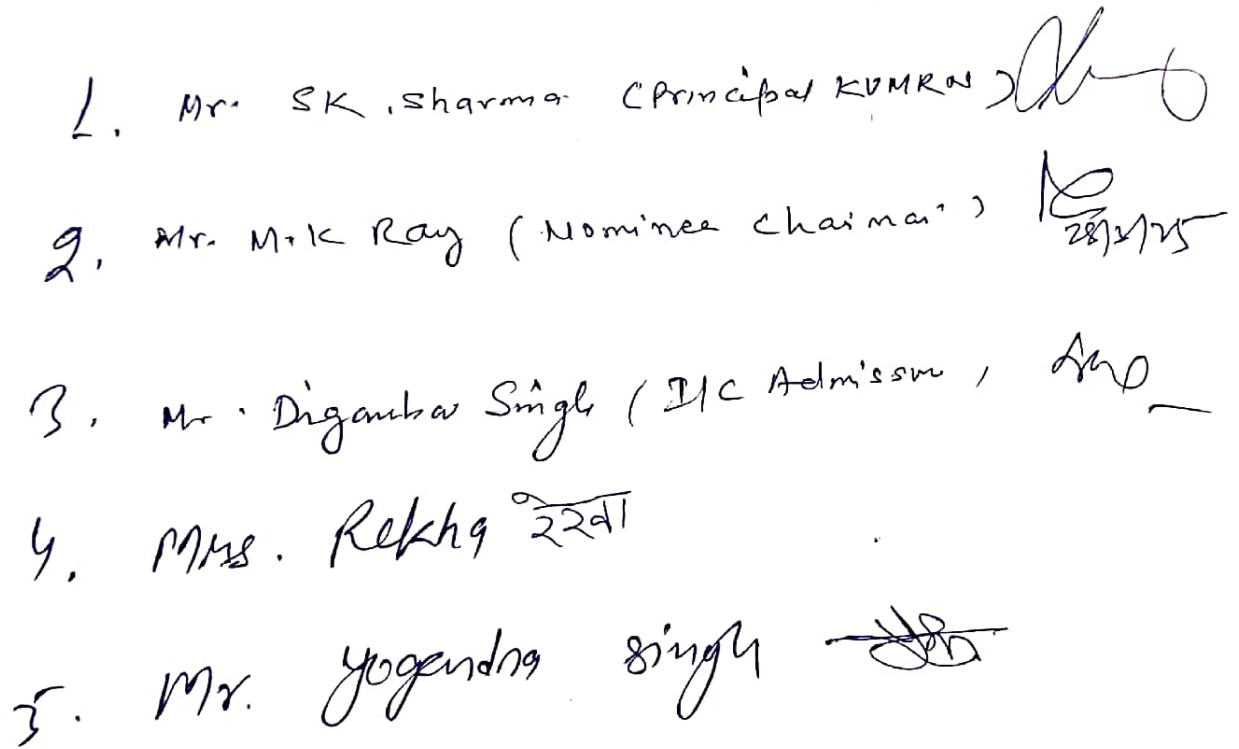 1. Mr. SK. Sharma (Principal KVMRN)
2. Mr. M.K Ray (Nominee Chairman) 28/3/25
3. Mr. Digambar Singh (I/C Admission)
4. Mrs. Rekha रेखा
5. Mr. Yogendra Singh